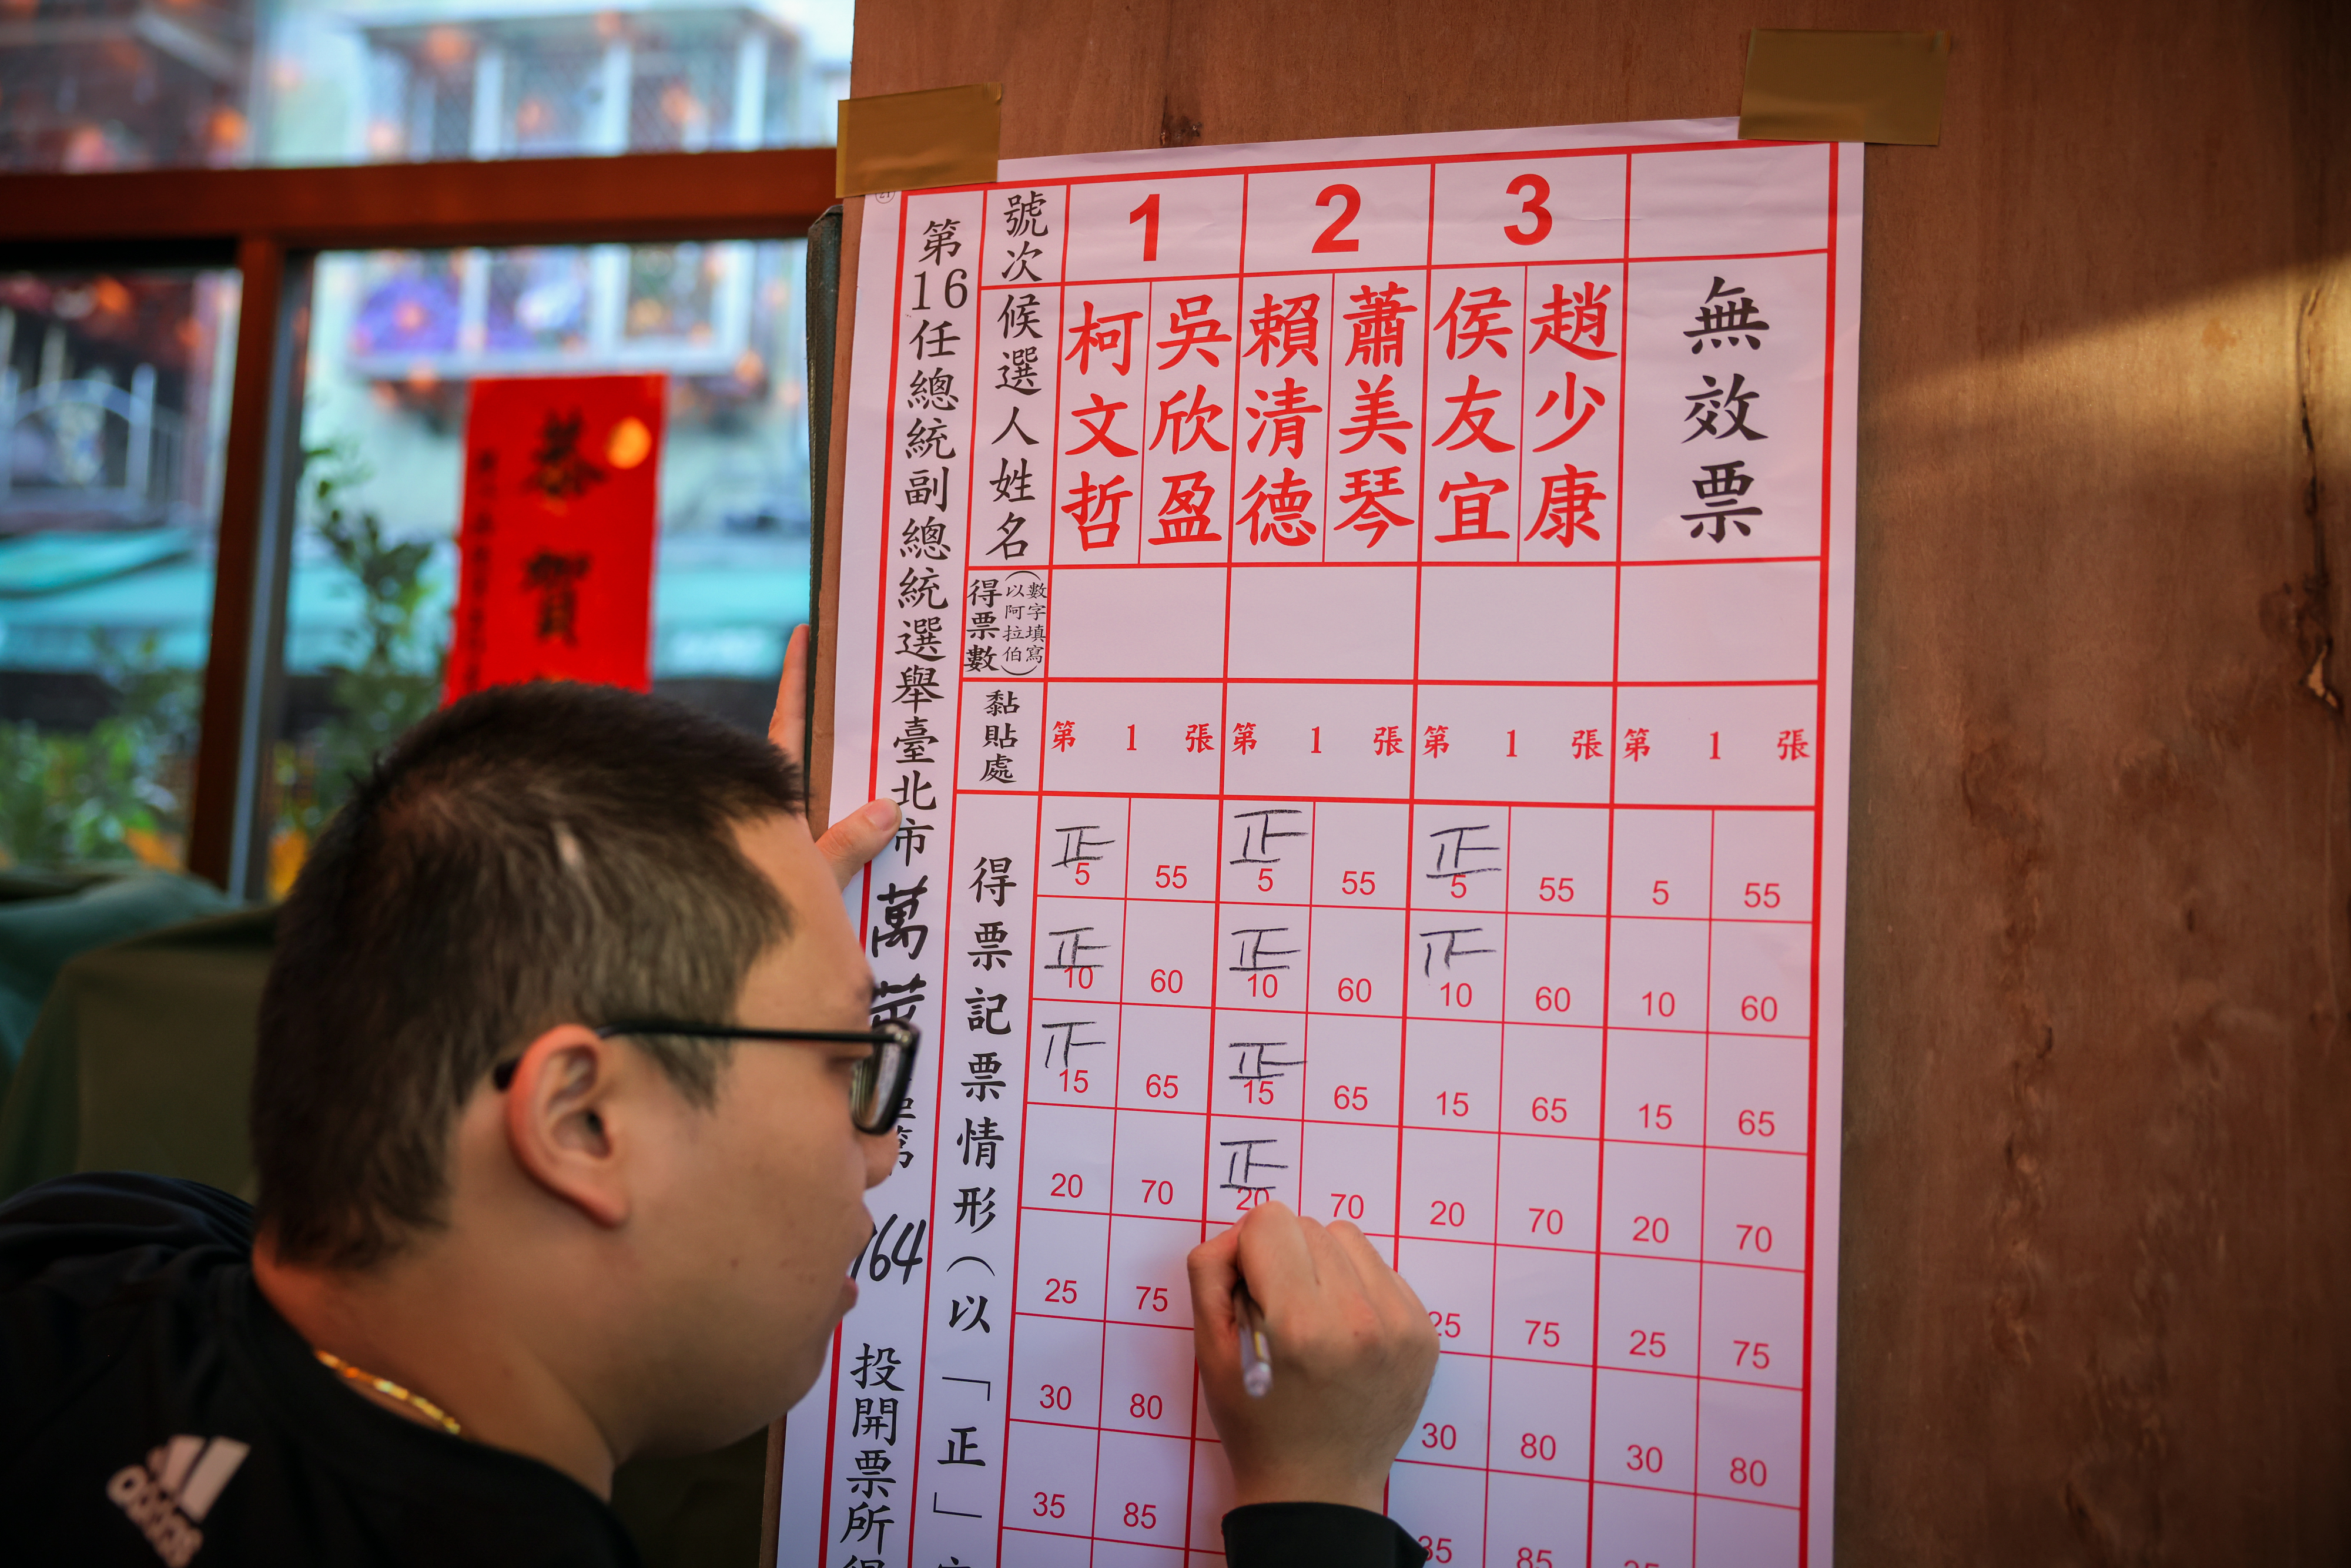 恭賀
第16任總統副總統選舉臺北市萬
第
164
投開票所得
號次
1
2
3
候選人姓名
柯文哲
吳欣盈
賴清德
蕭美琴
侯友宜
趙少康
無效票
得票數(以阿拉伯數字填寫)
黏貼處
第 1 張
第 1 張
第 1 張
第 1 張
得票記票情形(以「正」
正 5 55 正 5 55 正 5 55 5 55
正 10 60 正 10 60 10 60 10 60
15 65 正 15 65 15 65 15 65
20 70 正 20 70 20 70 20 70
25 75 25 75 25 75
30 80 30 80 30 80
35 85 35 85 35
adidas